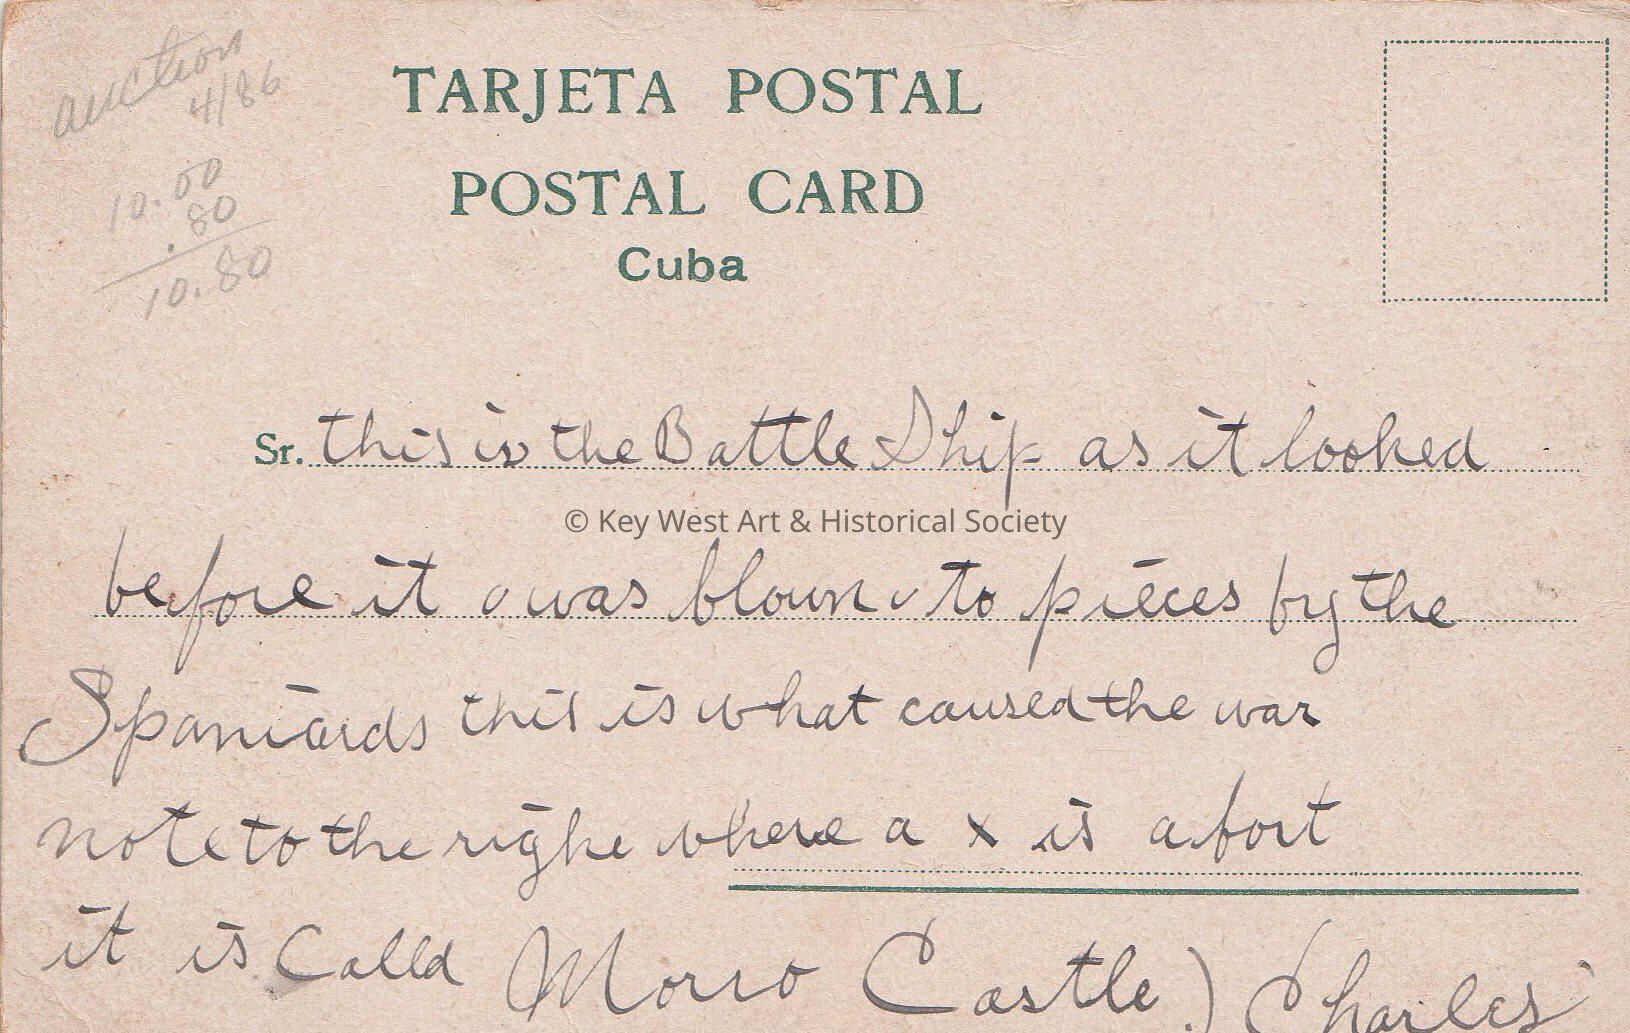 auction
4/86
10.00
.80
10.80
TARJETA POSTAL
POSTAL CARD
Cuba
Sr. this is the Battle Ship as it looked
© Key West Art & Historical Society
before it was blown to pieces by the
Spaniards this is what caused the war
note to the righe where a x is a fort
it is Calld Morro Castle) Charles